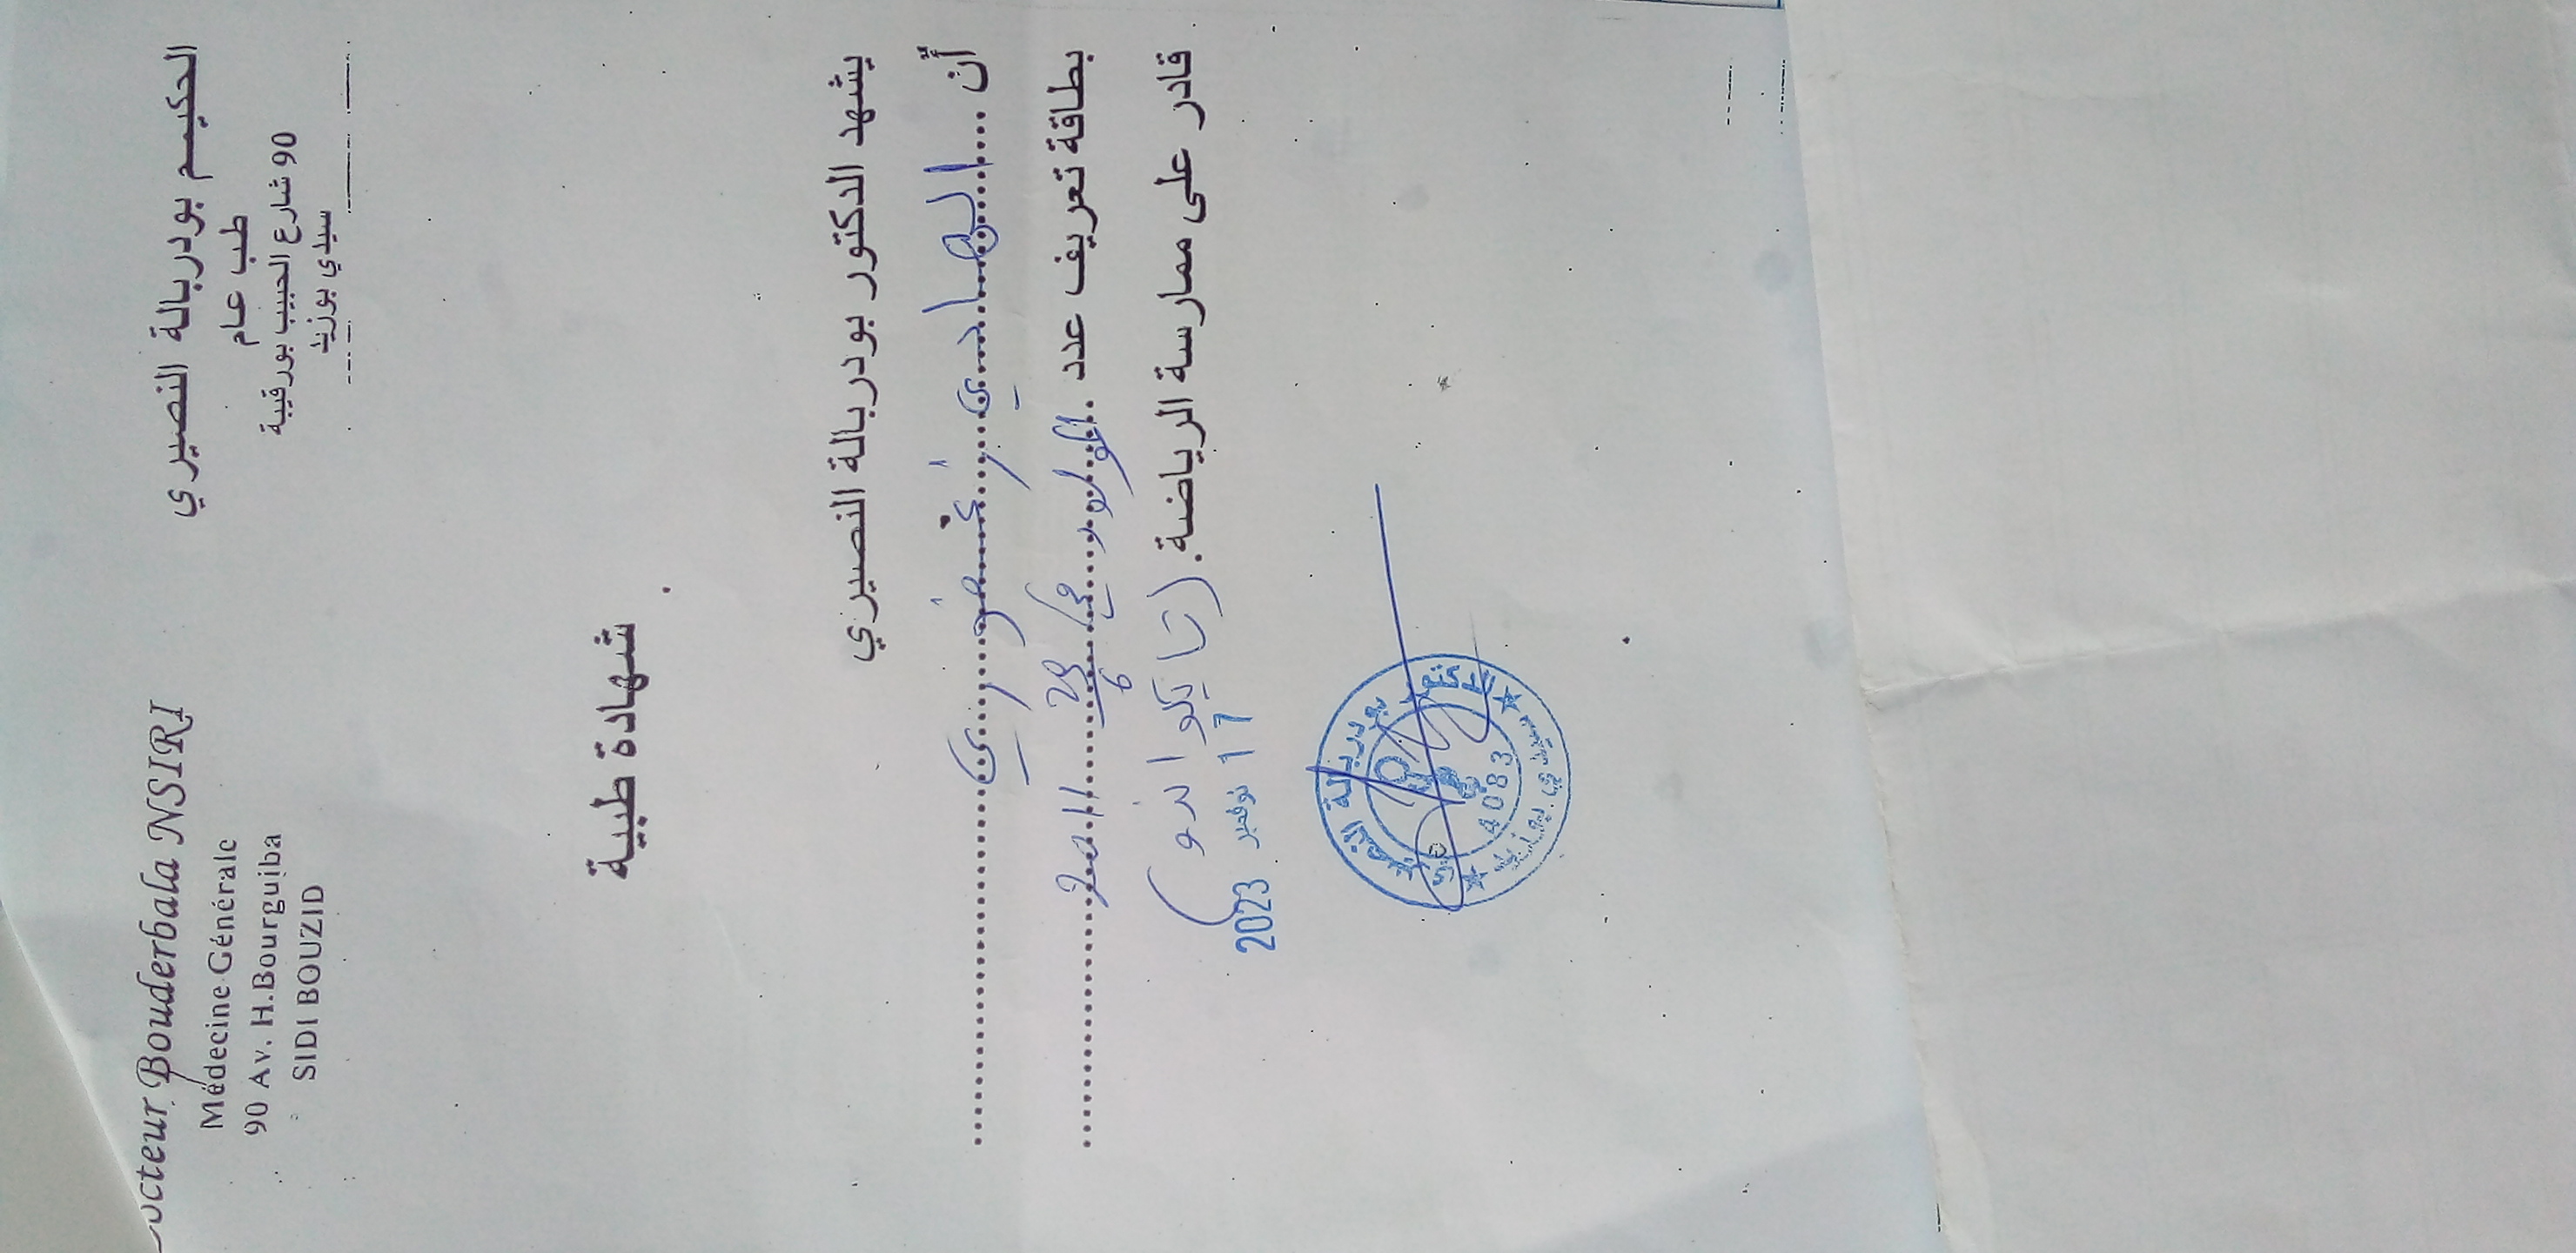 الحكيم بودربالة النصيري
طب عام
90 شارع الحبيب بورقيبة
سيدي بوزيد
octeur Bouderbala NSIRI
Médecine Générale
90 Av. H.Bourguiba
SIDI BOUZID
شهادة طبية
يشهد الدكتور بودربالة النصيري
أن .... الهادي ..........
بطاقة تعريف عدد . المولود في ..........
قادر على ممارسة الرياضة. (تايكواندو)
17 نوفمبر 2023
الدكتور بودربالة النصيري
4083
سيدي بوزيد